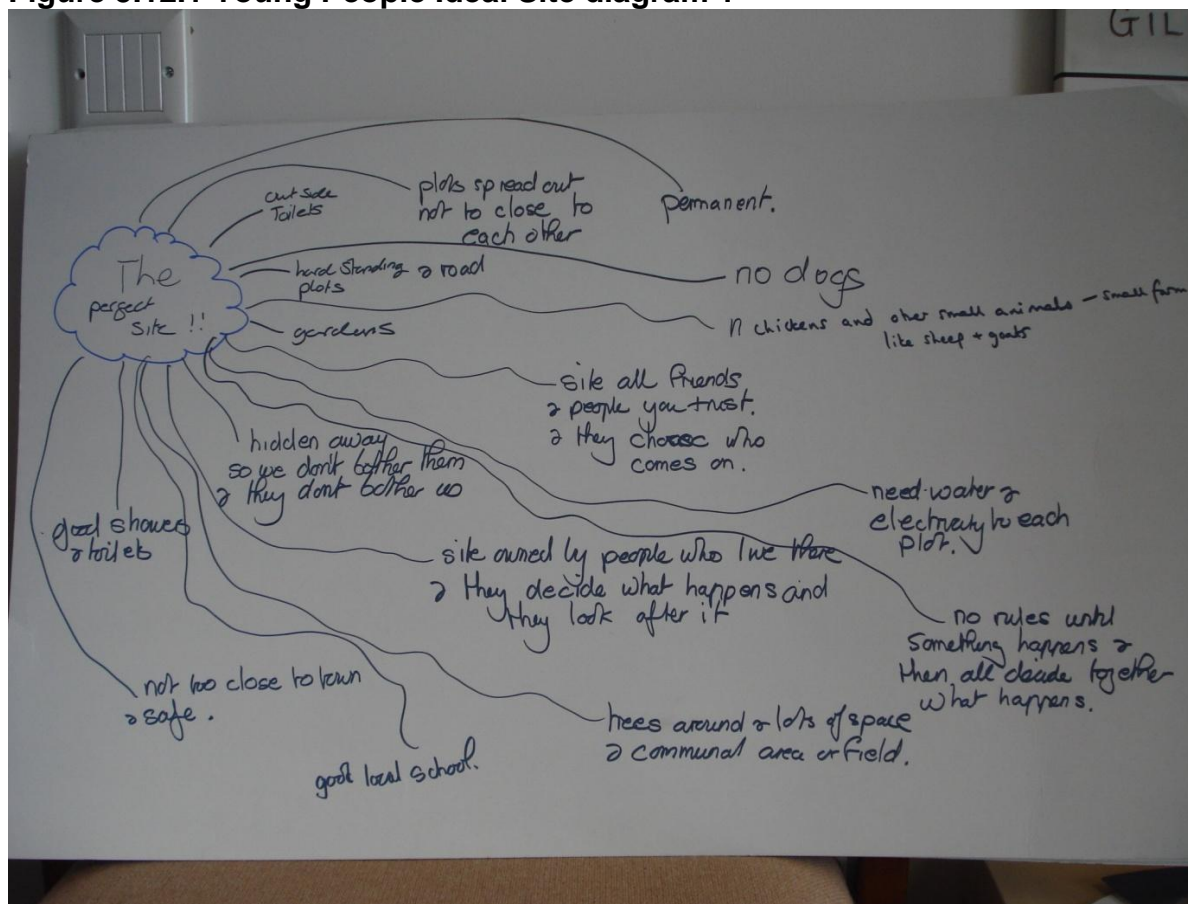 GIL
The
perfect
site !!
out side
Toilets
plots spread out
not to close to
each other
permanent.
hard standing & road
plots
no dogs
gardens
chickens and other small animals - small farm
like sheep + goats
site all friends
& people you trust.
& they choose who
comes on.
hidden away
so we don't bother them
& they dont bother us
need water &
electricity to each
plot.
good showers
& toilets
site owned by people who live there
& they decide what happens and
they look after it
no rules until
something happens &
then all decide together
what happens.
not too close to town
& safe.
trees around & lots of space
& communal area or field.
good local school.